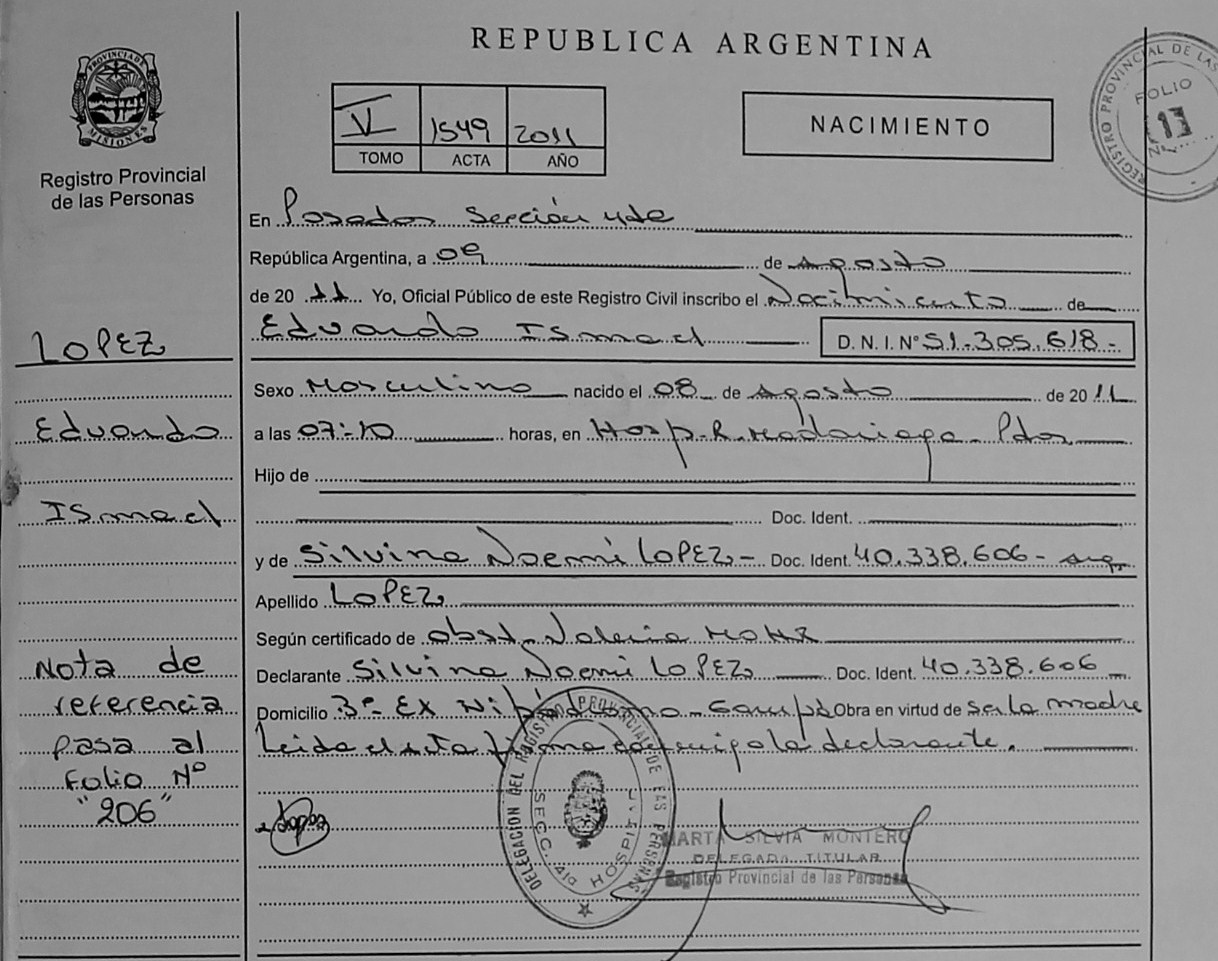 REPUBLICA ARGENTINA
PROVINCIA DE MISIONES
Registro Provincial
de las Personas
V 1549 2011
TOMO ACTA AÑO
NACIMIENTO
REGISTRO PROVINCIAL DE LAS
FOLIO
En Posadas Sección 4ta
República Argentina, a 09 de Agosto
de 2011 Yo, Oficial Público de este Registro Civil inscribo el Nacimiento de
Eduardo Ismael D. N. I. N° 51.305.618-
Sexo Masculino nacido el 08 de Agosto de 2011
a las 07:10 horas, en Hosp. R. Madariaga - Pdas
Hijo de
Doc. Ident.
y de Silvina Noemi LOPEZ - Doc. Ident. 40.338.606 - arg.
Apellido LOPEZ
Según certificado de obst. Valeria
Declarante Silvina Noemi LOPEZ Doc. Ident. 40.338.606
Domicilio 3° Ex Obra en virtud de ser la madre
Leida el acta firma conmigo la declarante.
LOPEZ
Eduardo
Ismael
Nota de
referencia
pasa al
Folio N°
"206"
Lopez
DELEGACION DEL REGISTRO PROVINCIAL DE LAS PERSONAS
SECC. 4ta HOSPITAL
MARTA SILVIA MONTERO
DELEGADA TITULAR
Registro Provincial de las Personas